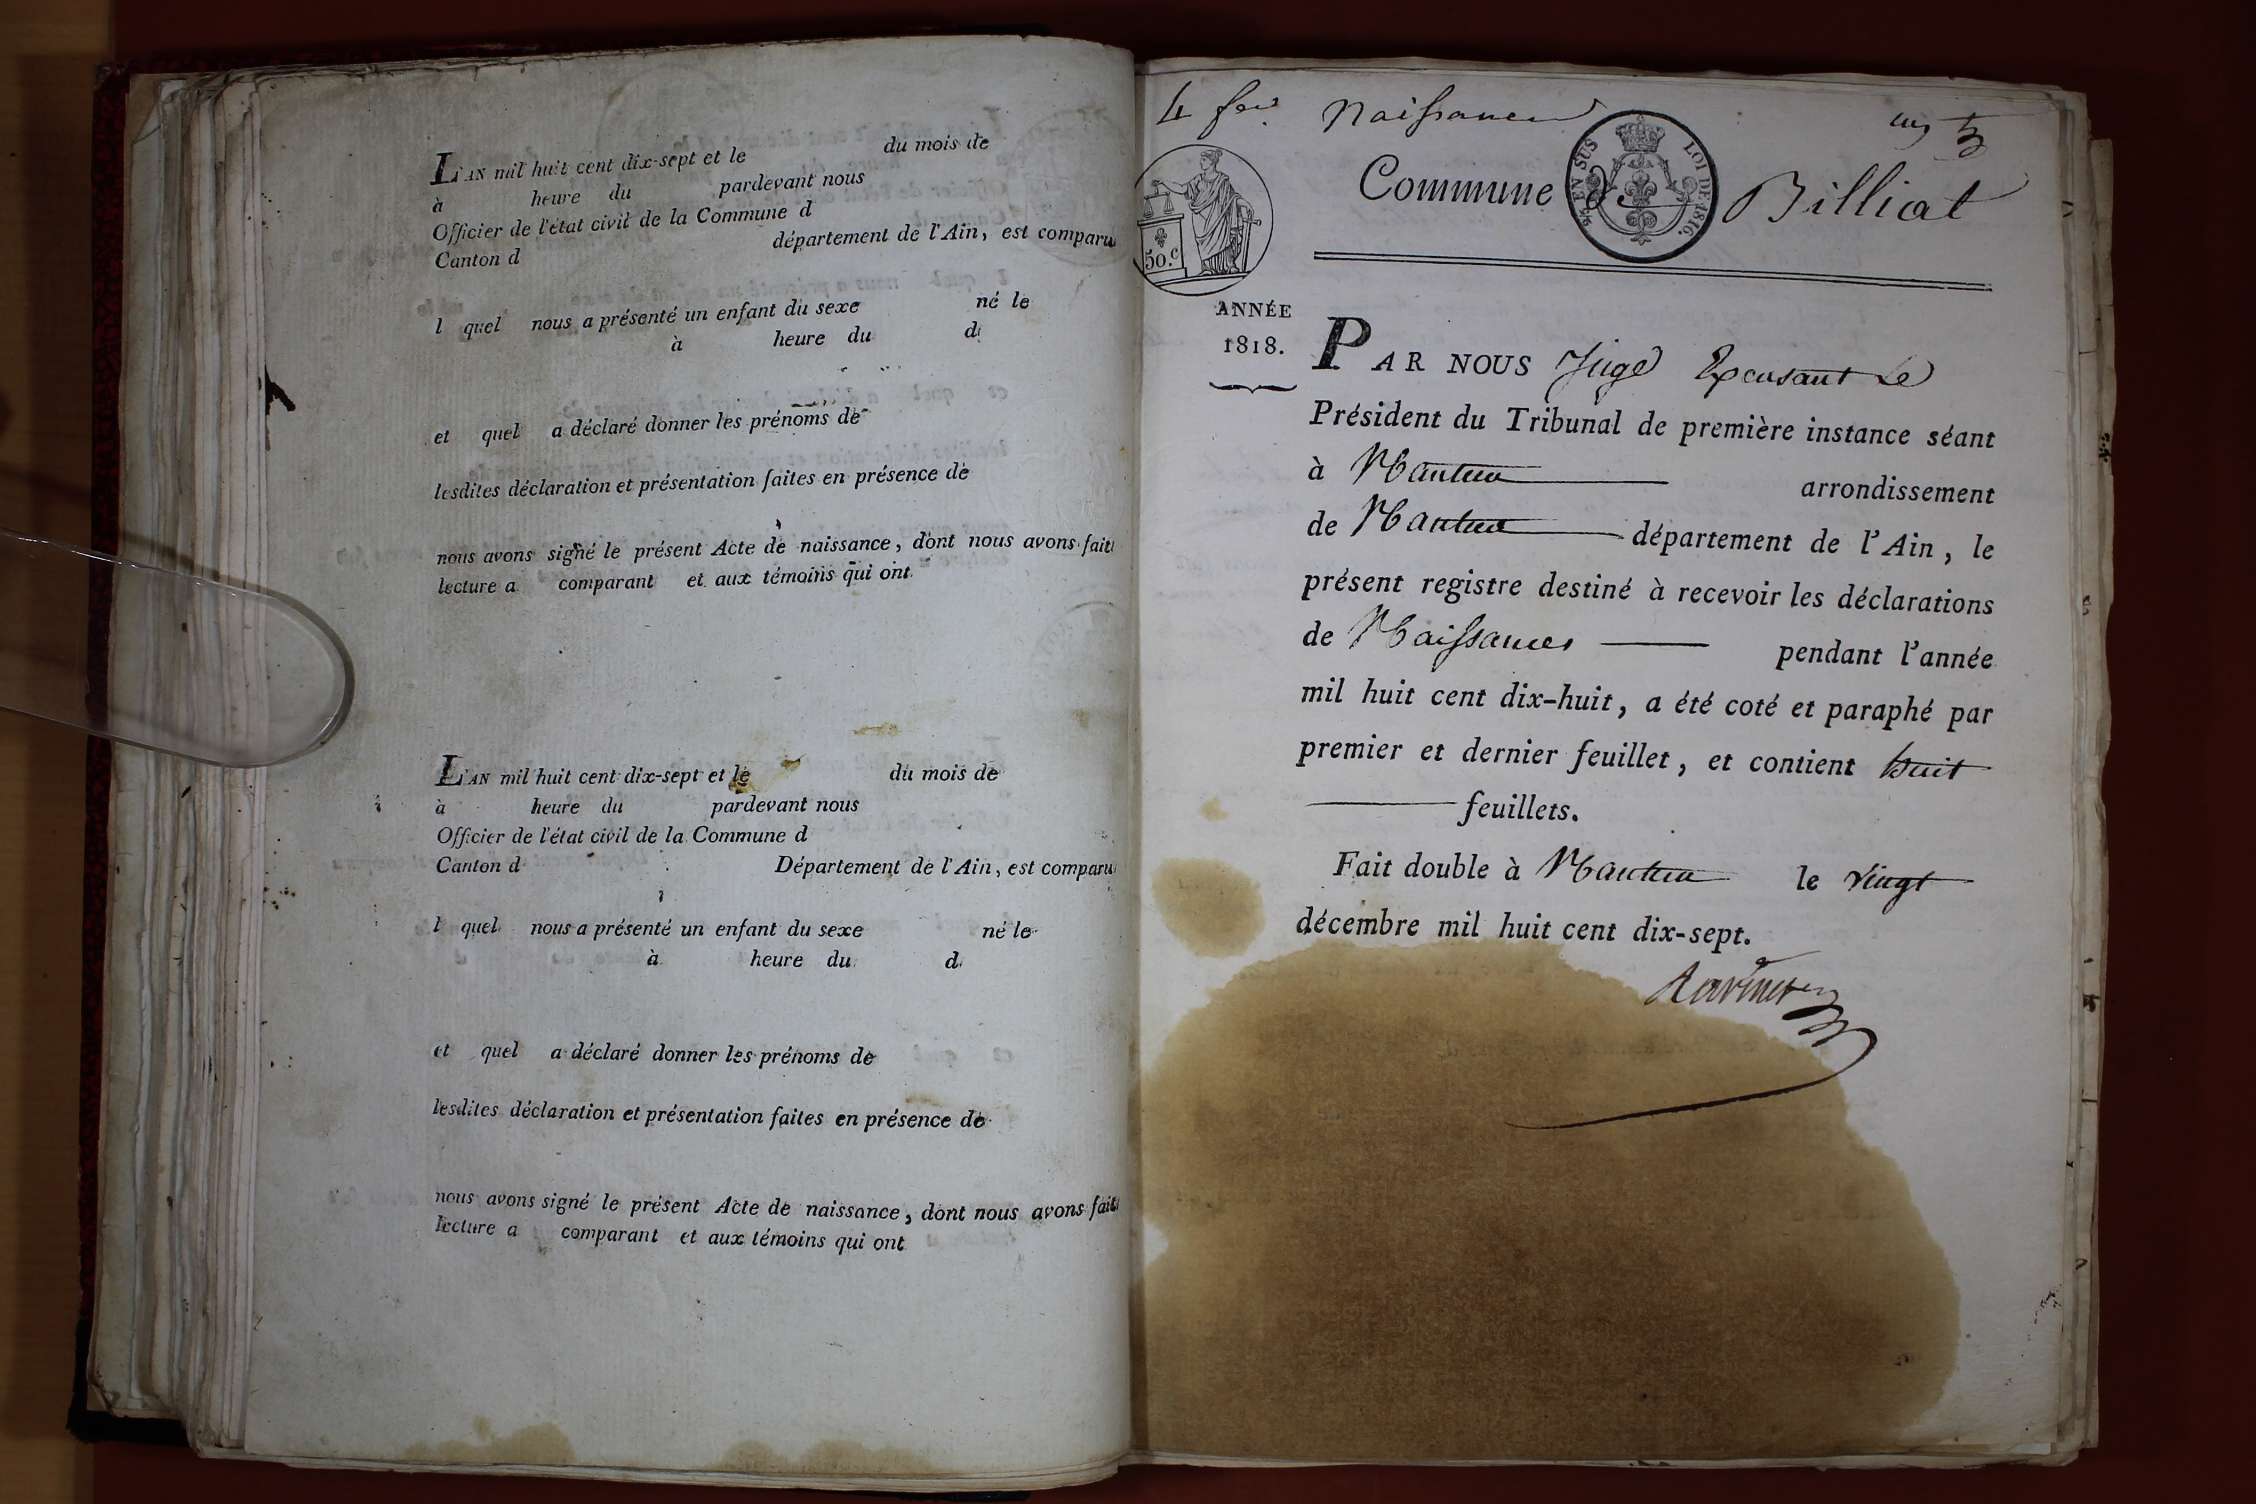 L'AN mil huit cent dix-sept et le du mois de
à heure du pardevant nous
Officier de l'état civil de la Commune d
Canton d département de l'Ain, est comparu
l quel nous a présenté un enfant du sexe né le
à heure du d
et quel a déclaré donner les prénoms de
lesdites déclaration et présentation faites en présence de
nous avons signé le présent Acte de naissance, dont nous avons fait
lecture a comparant et aux témoins qui ont
L'AN mil huit cent dix-sept et le du mois de
à heure du pardevant nous
Officier de l'état civil de la Commune d
Canton d Département de l'Ain, est comparu
l quel nous a présenté un enfant du sexe né le
à heure du d
et quel a déclaré donner les prénoms de
lesdites déclaration et présentation faites en présence de
nous avons signé le présent Acte de naissance, dont nous avons fait
lecture a comparant et aux témoins qui ont
4 Naissances
EN SUS LOI DE 1816.
Commune de Billiat
50.c
ANNÉE
1818.
PAR NOUS Juge Le
Président du Tribunal de première instance séant
à Nantua arrondissement
de Nantua département de l'Ain, le
présent registre destiné à recevoir les déclarations
de Naissances pendant l'année
mil huit cent dix-huit, a été coté et paraphé par
premier et dernier feuillet, et contient huit
feuillets.
Fait double à Nantua le vingt
décembre mil huit cent dix-sept.